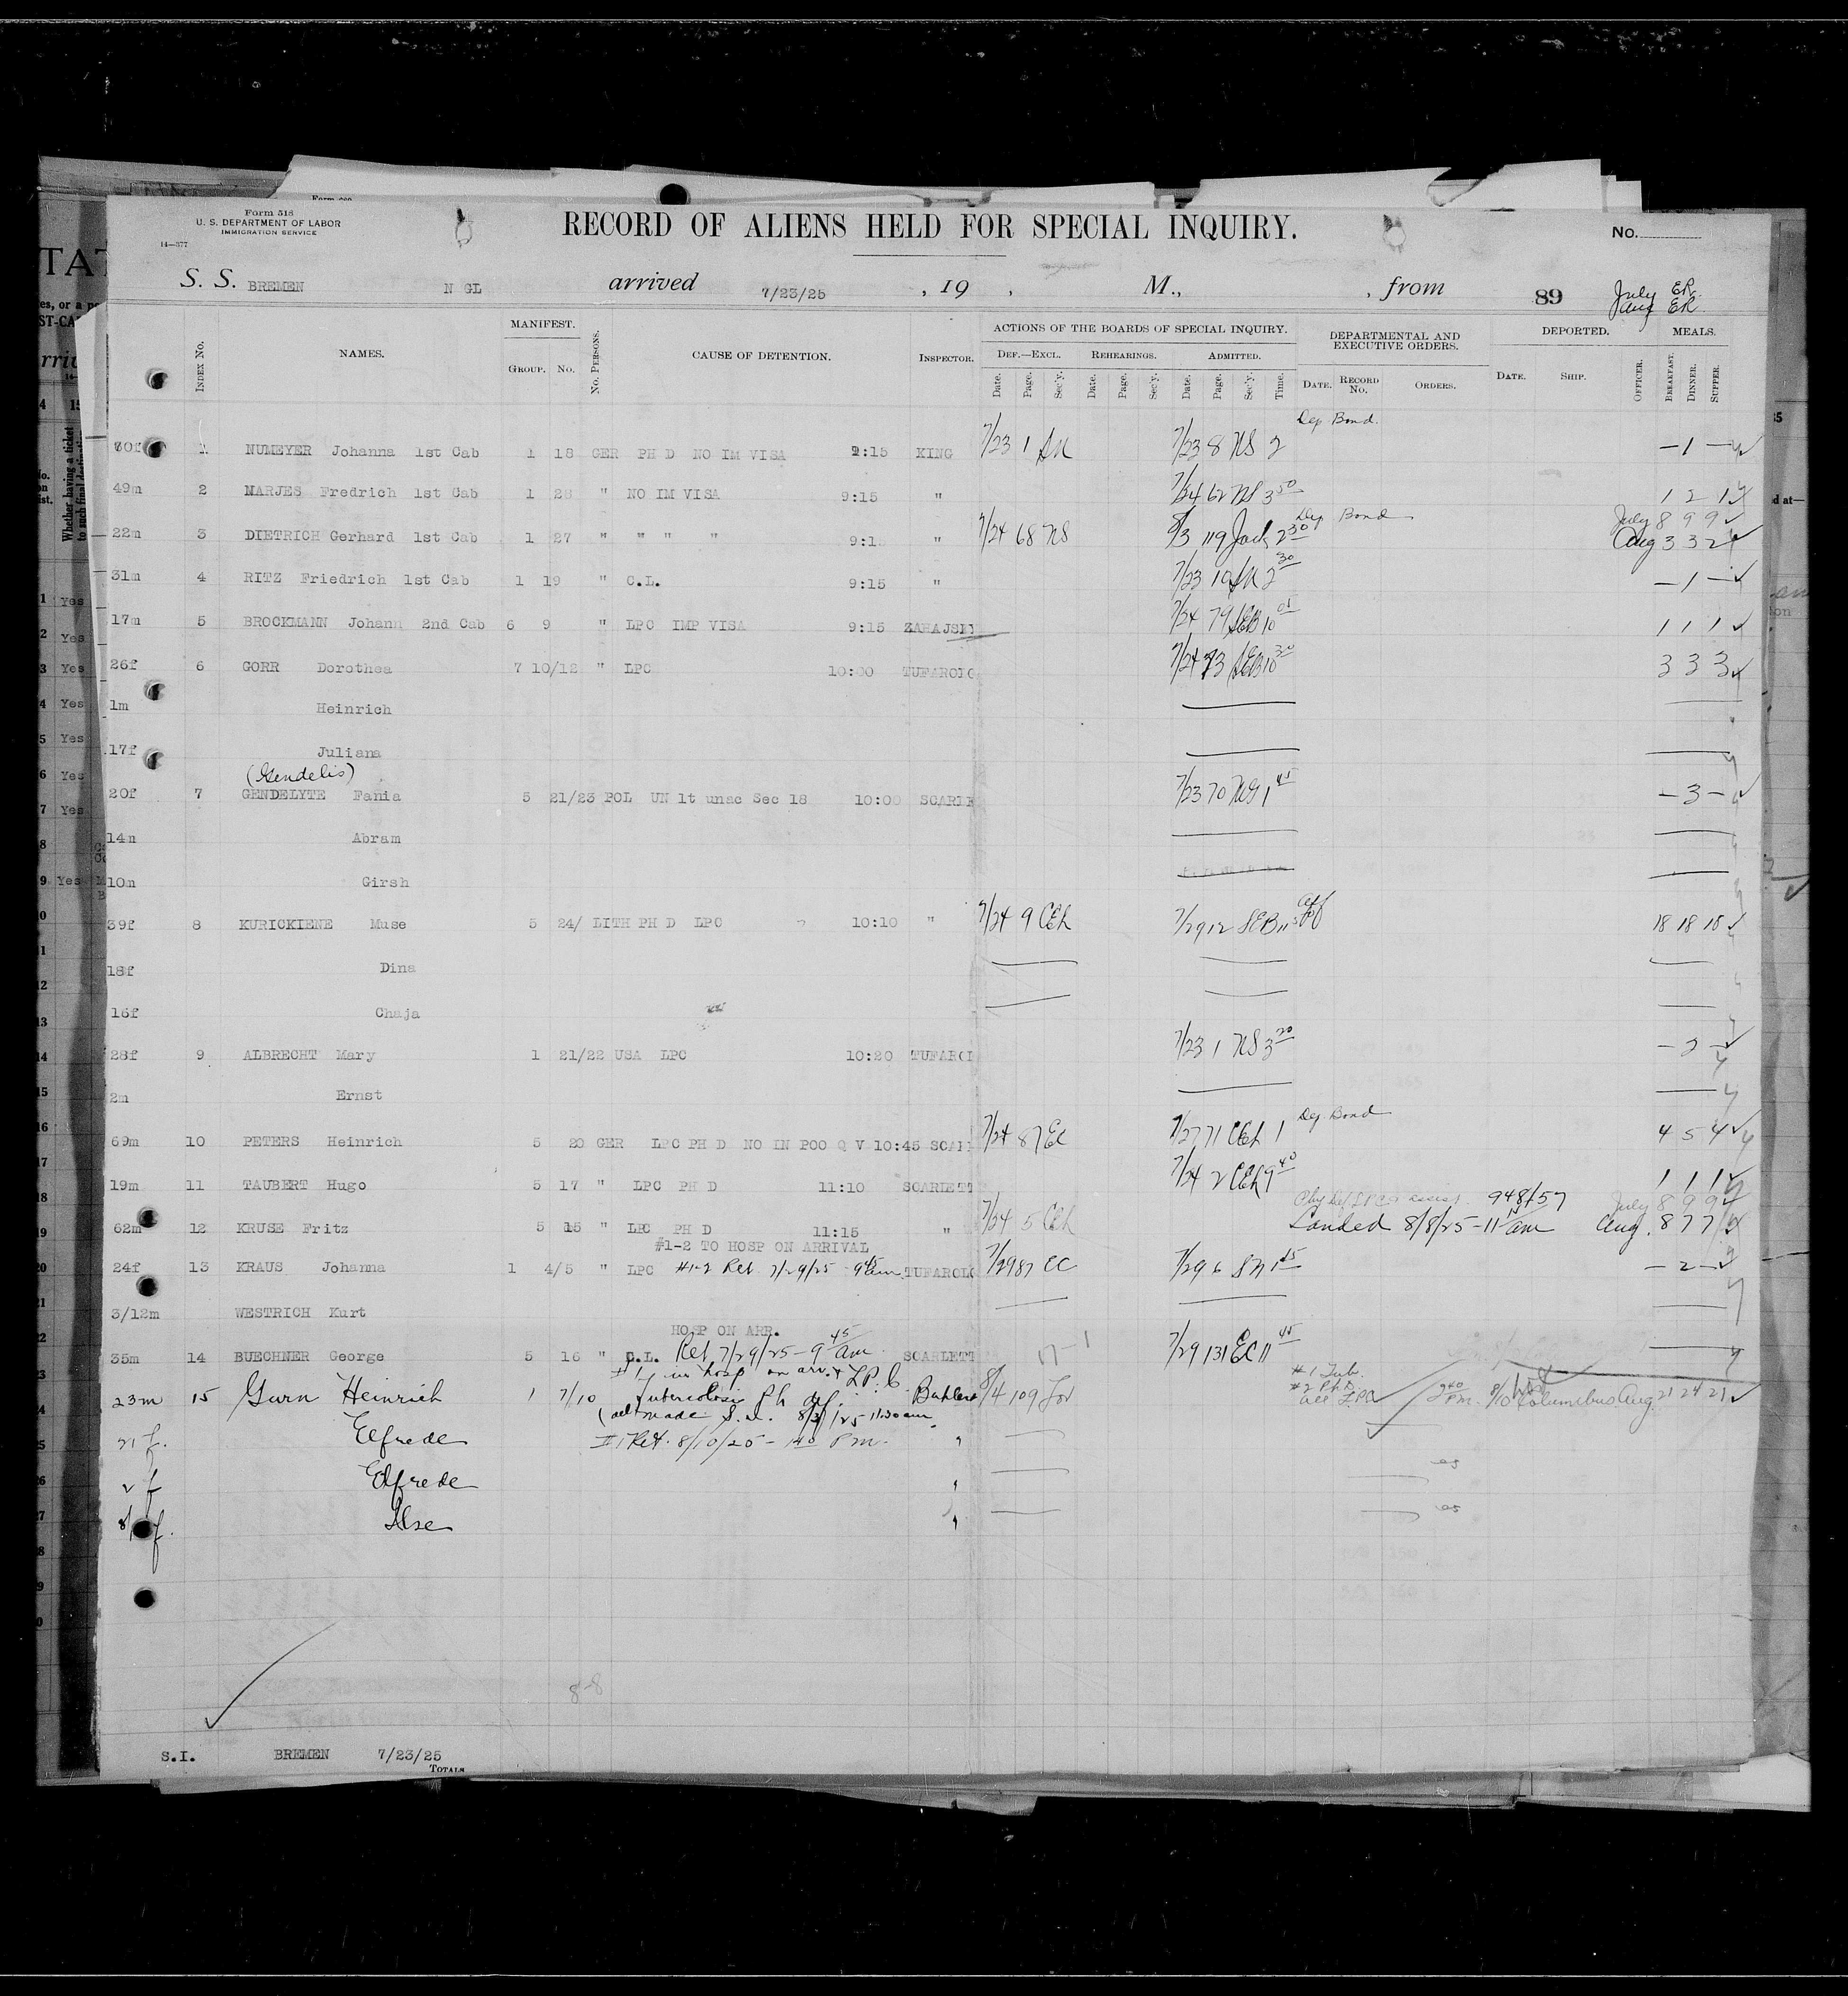 Form 518
U. S. DEPARTMENT OF LABOR
IMMIGRATION SERVICE
14—377
RECORD OF ALIENS HELD FOR SPECIAL INQUIRY.
No.
S. S. BREMEN N GL arrived 7/23/25, 19 , M., , from 89 July ER
Aug ER
INDEX No. NAMES. MANIFEST. GROUP. No. No. PERSONS. CAUSE OF DETENTION. INSPECTOR. ACTIONS OF THE BOARDS OF SPECIAL INQUIRY. DEF.—EXCL. REHEARINGS. ADMITTED. DEPARTMENTAL AND EXECUTIVE ORDERS. DEPORTED. MEALS.
Date. Page. Sec'y. Date. Page. Sec'y. Date. Page. Sec'y. Time. DATE. RECORD No. ORDERS. DATE. SHIP. OFFICER. BREAKFAST. DINNER. SUPPER.
Dep Bond.
70f 1 NUMEYER Johanna 1st Cab 1 18 GER PH D NO IM VISA 9:15 KING 7/23 1 7/23 8 NS 2 — 1 —
49m 2 MARJES Fredrich 1st Cab 1 28 " NO IM VISA 9:15 " 7/24 62 NS 3 50 1 2 1
22m 3 DIETRICH Gerhard 1st Cab 1 27 " " " " 9:15 " 7/24 68 NS 8/3 119 Jack 2 30 Dep Bond July 8 9 9
Aug 3 3 2
31m 4 RITZ Friedrich 1st Cab 1 19 " C.L. 9:15 " 7/23 10 2 30 — 1 —
17m 5 BROCKMANN Johann 2nd Cab 6 9 " LPC IMP VISA 9:15 ZAHAJSKY 7/24 79 SEB 10 01 1 1 1
26f 6 GORR Dorothea 7 10/12 " LPC 10:00 TUFAROLO 7/24 73 SEB 10 30 3 3 3
1m Heinrich
17f Juliana
(Gendelis)
20f 7 GENDELYTE Fania 5 21/23 POL UN 1t unac Sec 18 10:00 SCARLE 7/23 70 NS 1 45 — 3 —
14m Abram
10m Girsh
39f 8 KURICKIENE Muse 5 24/ LITH PH D LPC 10:10 " 7/24 9 CEh 7/29 12 SEB 11 18 18 18
18f Dina
16f Chaja
28f 9 ALBRECHT Mary 1 21/22 USA LPC 10:20 TUFAROL 7/23 1 NS 3 20 — 2 —
2m Ernst
69m 10 PETERS Heinrich 5 20 GER LPC PH D NO IN POO Q V 10:45 SCARL 7/24 87 EC 7/27 71 CEh 1 Dep. Bond 4 5 4
19m 11 TAUBERT Hugo 5 17 " LPC PH D 11:10 SCARLETT 7/24 2 CEh 9 40 1 1 1
62m 12 KRUSE Fritz 5 15 " LPC PH D 11:15 " 7/24 5 CEh 948/57 July 8 9 9
Landed 8/8/25 - 11 am Aug. 8 7 7
#1-2 TO HOSP ON ARRIVAL
24f 13 KRAUS Johanna 1 4/5 " LPC #1-2 Ret 7/29/25 - 9 45 am TUFAROLO 7/29 87 EC 7/29 6 SN 1 45 — 2 —
3/12m WESTRICH Kurt
HOSP ON ARR.
35m 14 BUECHNER George 5 16 " C.L. Ret 7/29/25 - 9 45 am SCARLETT 7/29 131 EC 11 45
#1 in hosp on arr. & LPC
23m 15 Gurn Heinrich 1 7/10 Tuberculosis Ph def. 8/4 109 #1 Tub. #2 Ph.D. all LPC 2 40 Pm. 8/10 Columbus Aug 21 24 21
made S.I. 8/3/25 11:30 am
21 f. Elfrede #1 Ret. 8/10/25 - 1 40 Pm. "
2 f Elfrede "
f. Ilse "
8-8
S.I. BREMEN 7/23/25
TOTALS